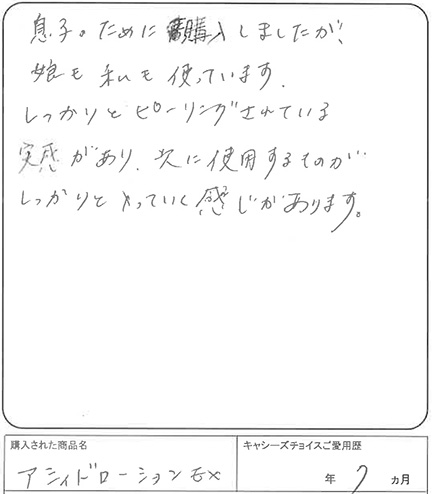 息子のために購入しましたが、
娘も私も使っています。
しっかりとピーリングされている
実感があり、次に使用するものが
しっかりと入っていく感じがあります。
購入された商品名
アシィドローションEX
キャシーズチョイスご愛用歴
年 7 ヵ月